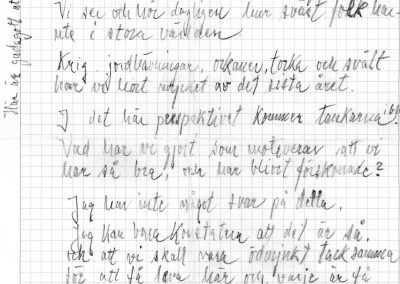 Vi ser och hör dagligen hur svårt folk har
ute i stora världen.
Krig, jordbävningar, orkaner, torka och svält
har vi hört mycket av det sista året.
I det här perspektivet kommer tankarna:
Vad har vi gjort som motiverar att vi
har så bra, och har blivit förskonade?
Jag har inte något svar på detta.
Jag kan bara konstatera att det är så,
och att vi skall vara ödmjukt tacksamma
för att få leva här och varje år få